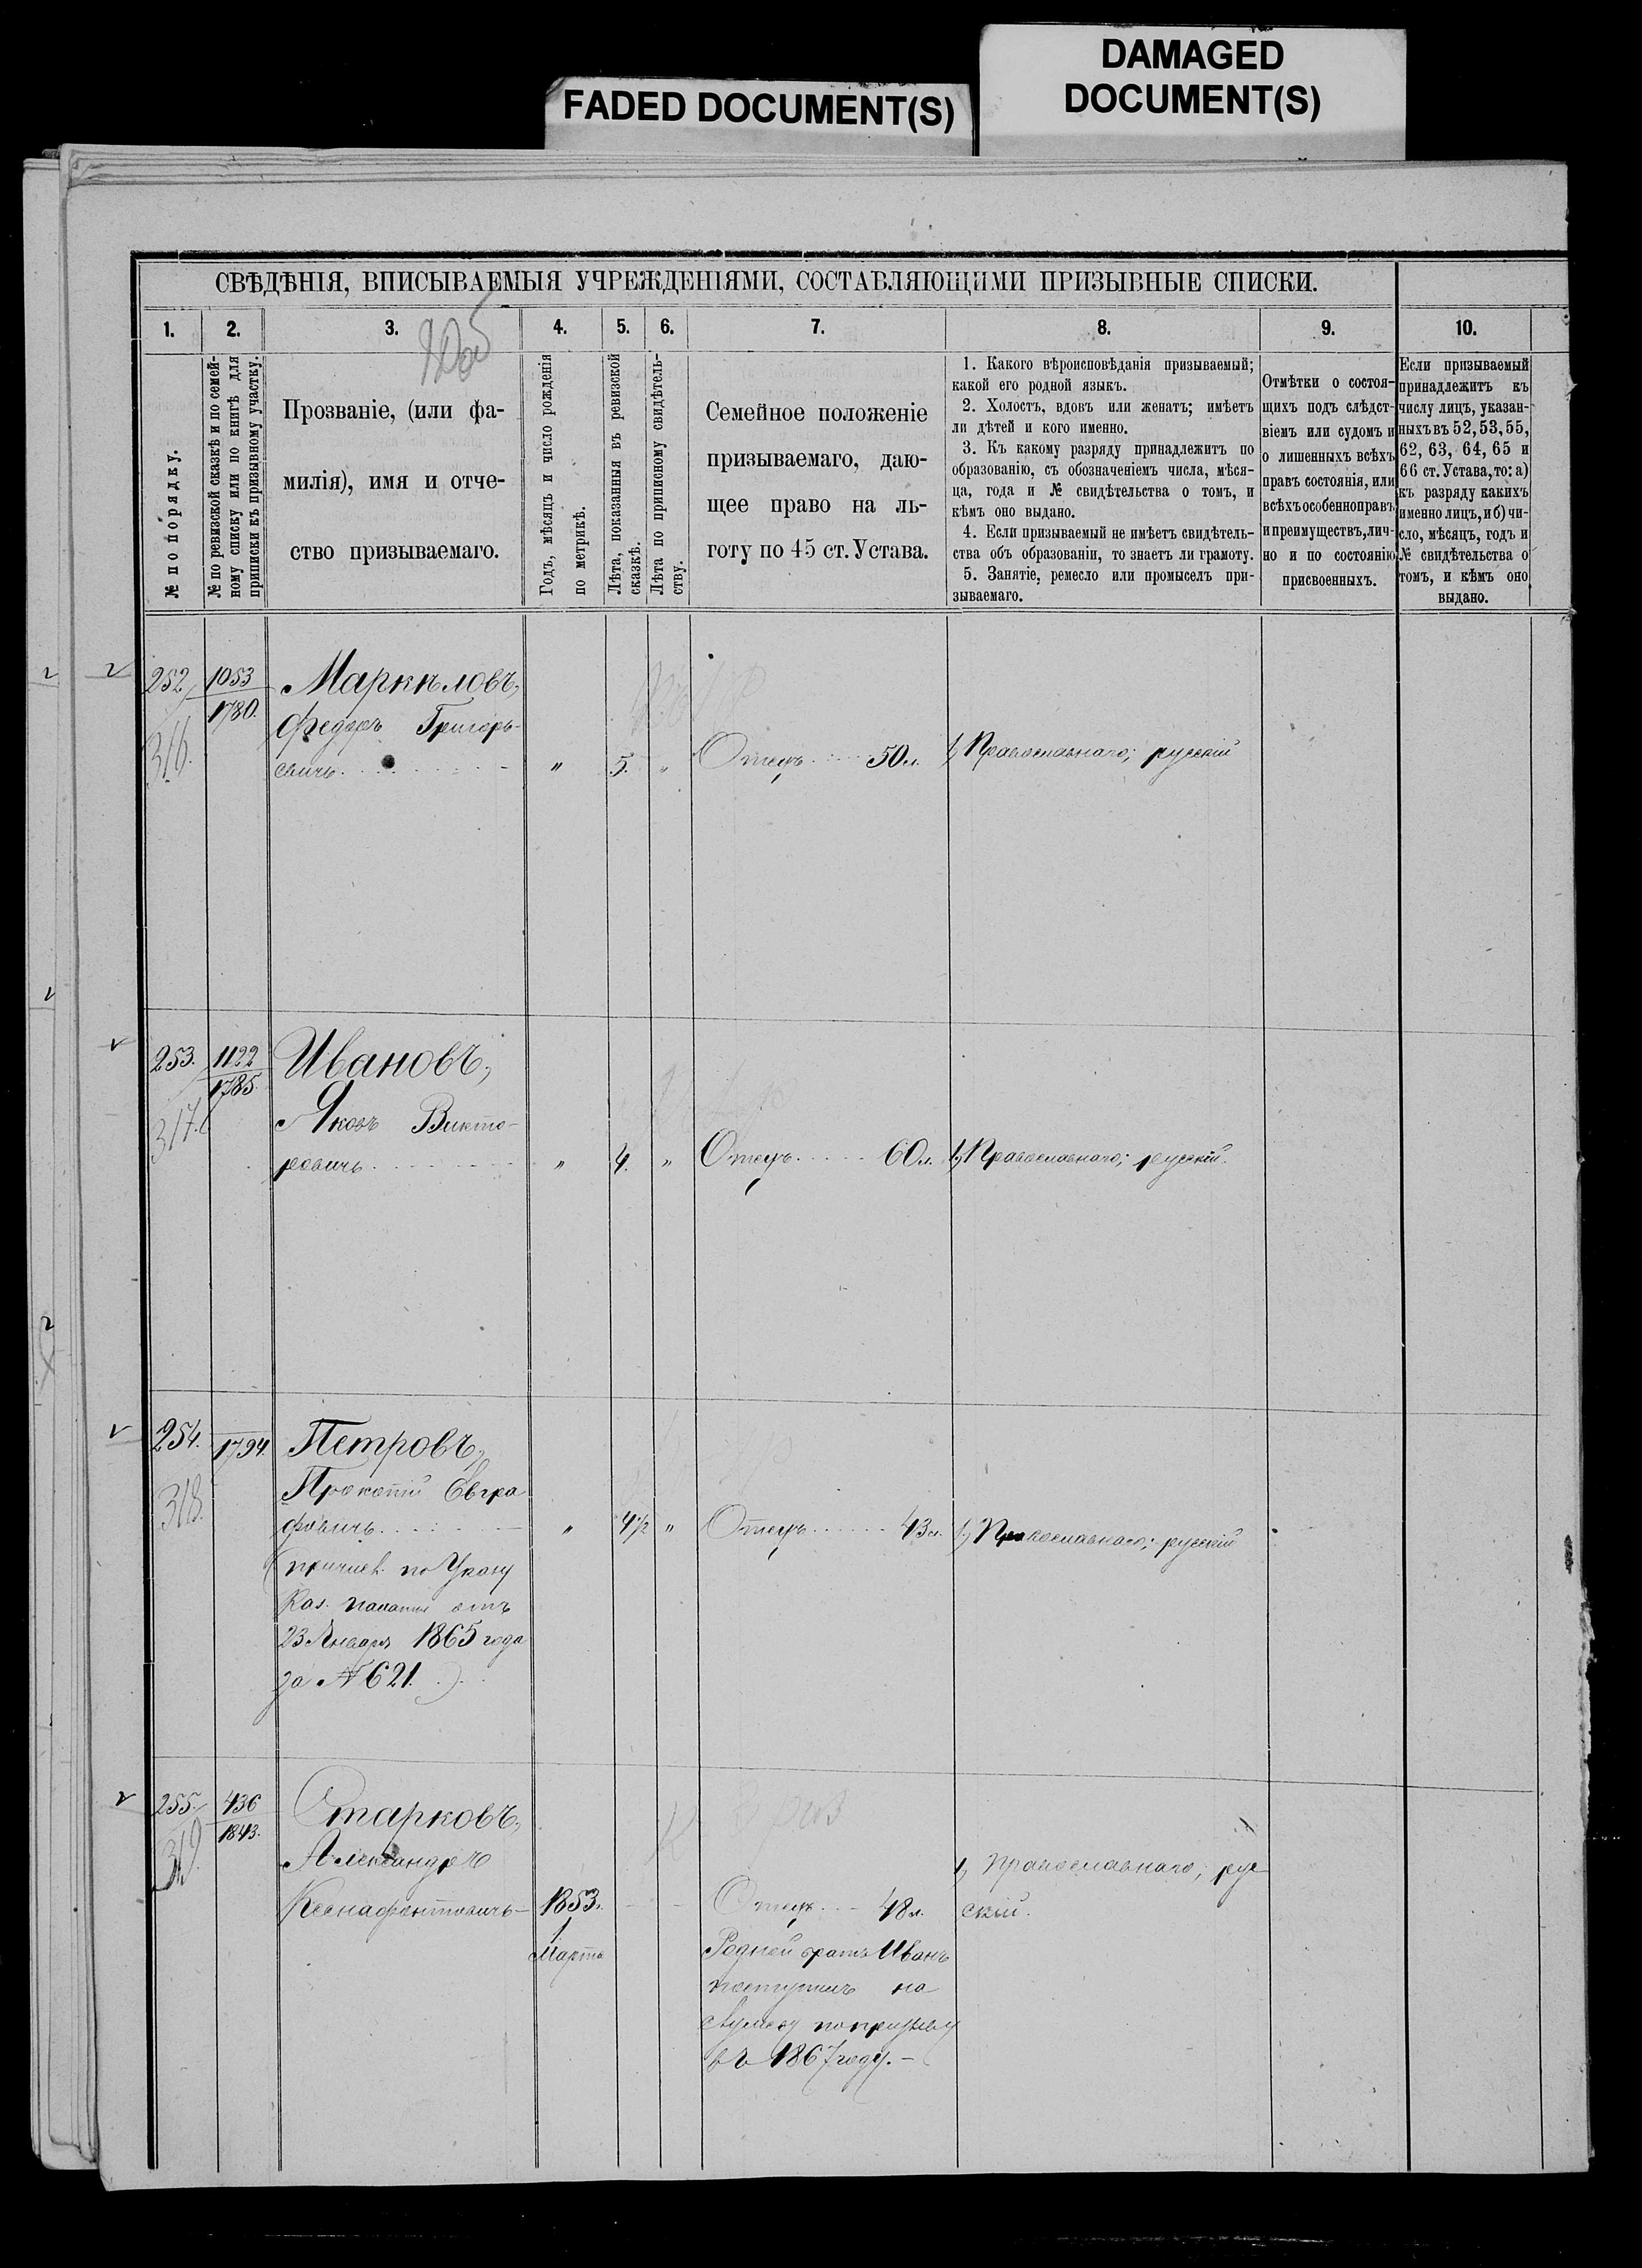 FADED DOCUMENT(S)
DAMAGED
DOCUMENT(S)
СВѢДѢНІЯ, ВПИСЫВАЕМЫЯ УЧРЕЖДЕНІЯМИ, СОСТАВЛЯЮЩИМИ ПРИЗЫВНЫЕ СПИСКИ.
1. 2. 3. 4. 5. 6. 7. 8. 9. 10.
№ по порядку.
№ по ревизской сказкѣ и по семей-
ному списку или по книгѣ для
приписки къ призывному участку.
Прозваніе, (или фа-
милія), имя и отче-
ство призываемаго.
Годъ, мѣсяцъ и число рожденія
по метрикѣ.
Лѣта, показанныя въ ревизской
сказкѣ.
Лѣта по приписному свидѣтель-
ству.
Семейное положеніе
призываемаго, даю-
щее право на ль-
готу по 45 ст. Устава.
1. Какого вѣроисповѣданія призываемый;
какой его родной языкъ.
2. Холостъ, вдовъ или женатъ; имѣетъ
ли дѣтей и кого именно.
3. Къ какому разряду принадлежитъ по
образованію, съ обозначеніемъ числа, мѣся-
ца, года и № свидѣтельства о томъ, и
кѣмъ оно выдано.
4. Если призываемый не имѣетъ свидѣтель-
ства объ образованіи, то знаетъ ли грамоту.
5. Занятіе, ремесло или промыселъ при-
зываемаго.
Отмѣтки о состоя-
щихъ подъ слѣдст-
віемъ или судомъ и
о лишенныхъ всѣхъ
правъ состоянія, или
всѣхъ особенно правъ
и преимуществъ, лич-
но и по состоянію
присвоенныхъ.
Если призываемый
принадлежитъ къ
числу лицъ, указан-
ныхъ въ 52, 53, 55,
62, 63, 64, 65 и
66 ст. Устава, то: а)
къ разряду какихъ
именно лицъ, и б) чи-
сло, мѣсяцъ, годъ и
№ свидѣтельства о
томъ, и кѣмъ оно
выдано.
252 1053 Маркѣловъ,
1780.
316.
Федоръ Григорь-
евичъ " 5. " Отецъ 50 л. 1) Православнаго; русскій
253. 1122 Ивановъ,
1785.
317.
Яковъ Викто-
ровичъ " 4. " Отецъ 60 л. 1) Православнаго; русскій.
254. 1794. Петровъ,
318.
Прокопій Евгра
фовичъ " 4½ " Отецъ 43 л. 1) Православнаго; русскій
(причисл. по Указу
Каз. палаты отъ
23 Января 1865 года
за № 621.)
255. 436 Старковъ,
1843.
319.
Александръ
Ксенафонтовичъ 1853. Отецъ 48 л. 1) Православнаго; рус
скій.
1
Марта
Родной братъ Иванъ
поступилъ на
службу по призыву
въ 1867 году.